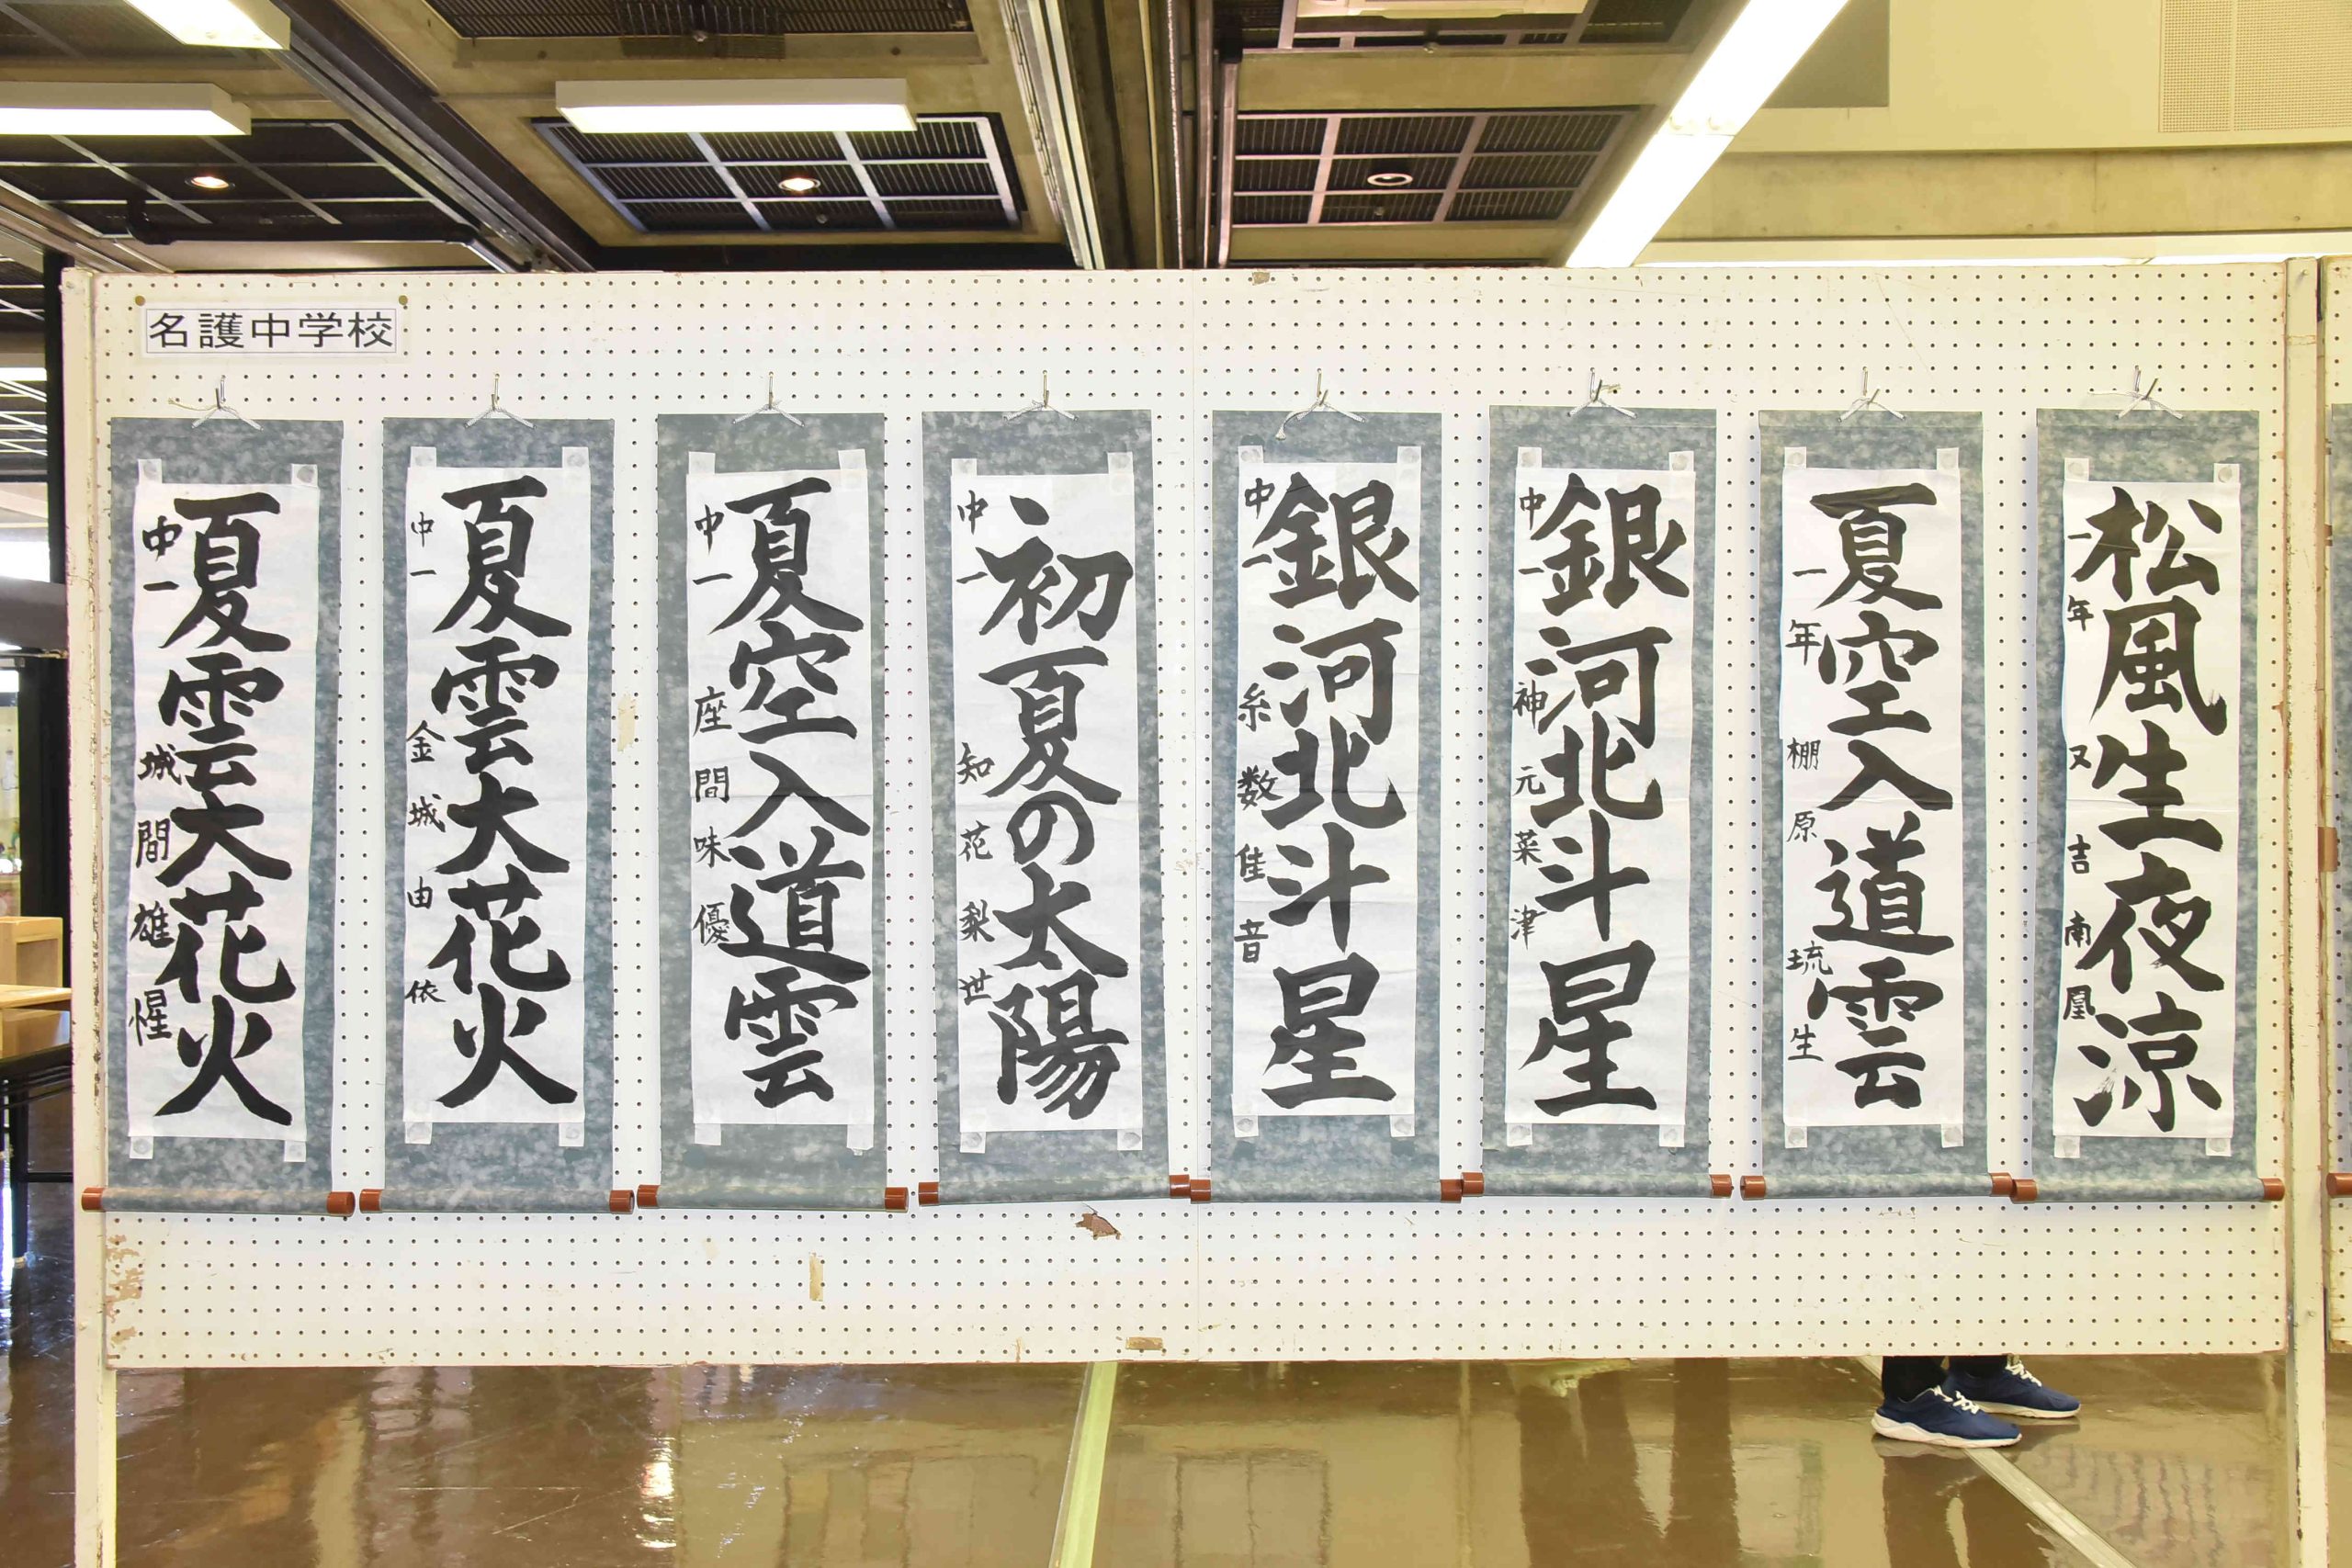 名護中学校
夏雲大花火
中一 城間雄惺
夏雲大花火
中一 金城由依
夏空入道雲
中一 座間味優
初夏の太陽
中一 知花梨世
銀河北斗星
中一 糸数佳音
銀河北斗星
中一 神元菜津
夏空入道雲
一年 棚原琉生
松風生夜涼
一年 又吉南凰